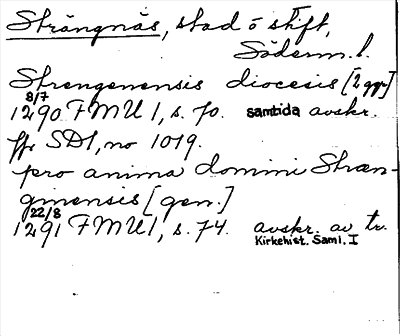 Strängnäs, stad o stift,
Söderm. l.
Strengenensis diocesis [2 ggr]
8/7
1290 FMU 1, s. 70. samtida avskr.
ffr SD1, no 1019.
pro anima domini Stræn-
ginensis [gen.]
22/8
1291 FMU 1, s. 74. avskr. av tr.
Kirkehist. Saml. I